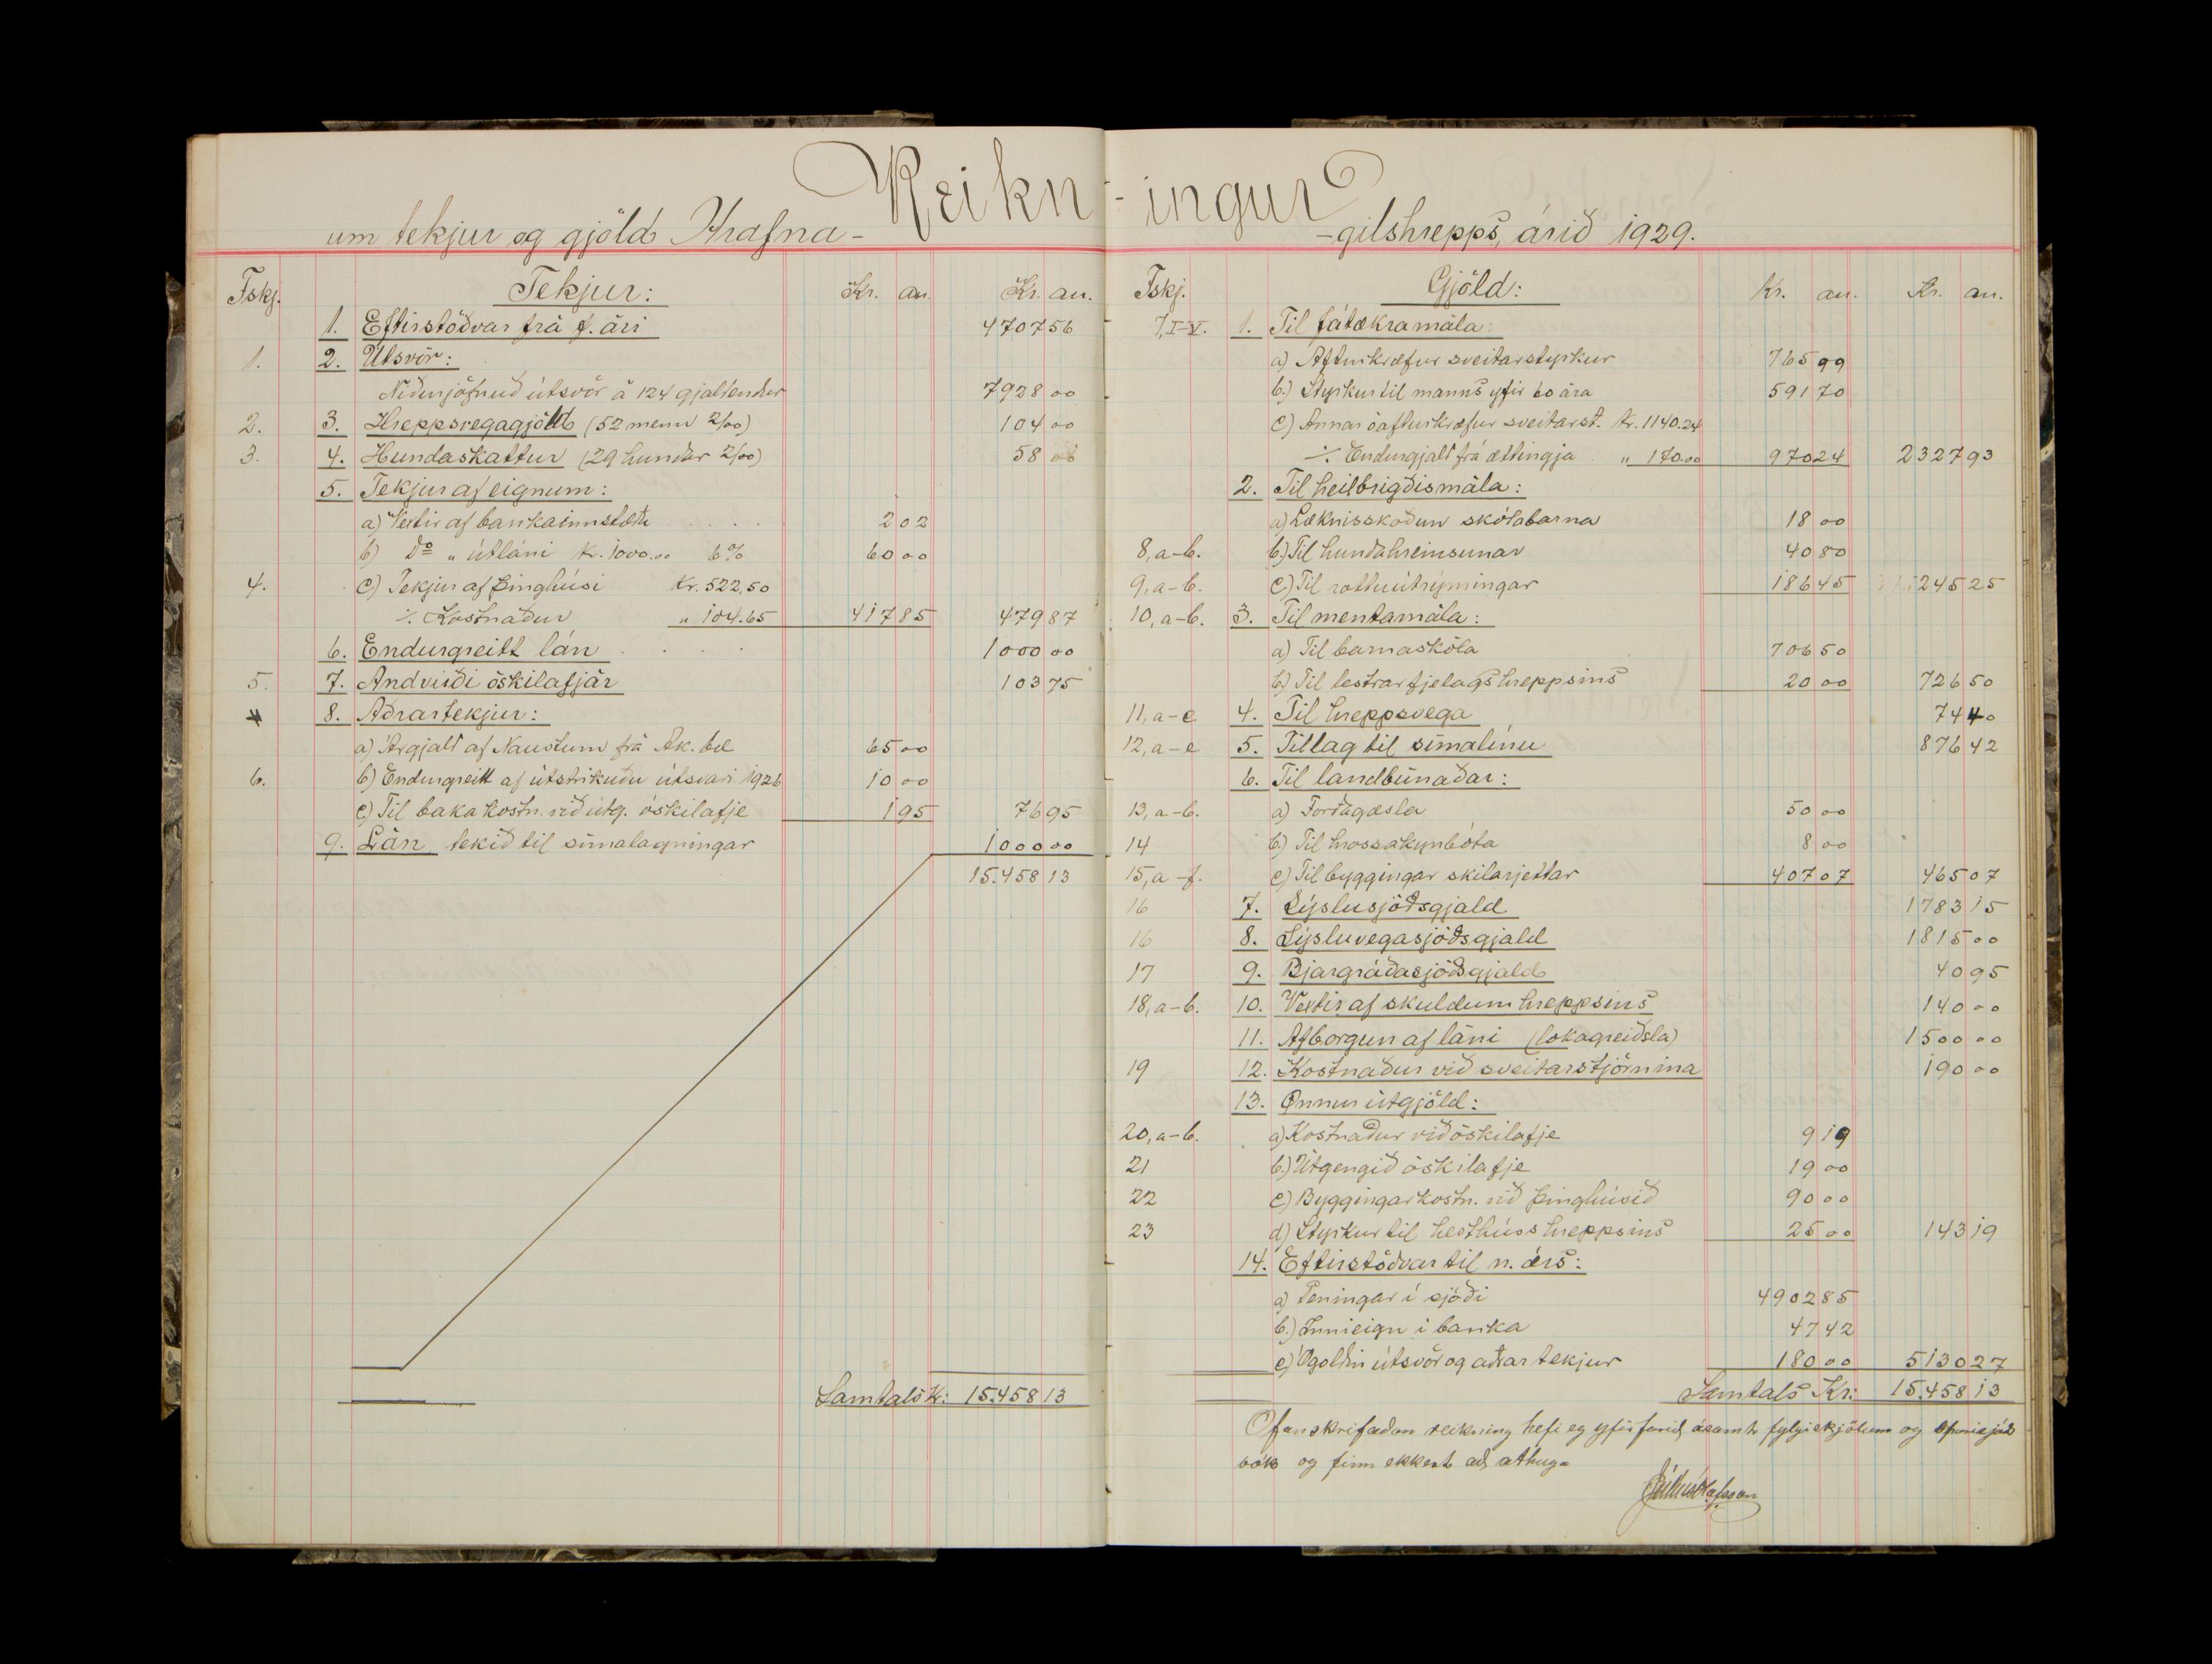 Reikn-ingur
um tekjur og gjöld Hrafna- -gilshrepps, árið 1929.
Fskj. Tekjur: Kr. au. Kr. au.
1. Eftirstöðvar frá f. ári 4707 56
1. 2. Útsvör:
Niðurjöfnuð útsvör á 124 gjaldendur 7928 00
2. 3. Hreppsvegagjöld (52 menn 2/00) 104 00
3. 4. Hundaskattur (29 hundar 2/00) 58 00
5. Tekjur af eignum:
a) Vextir af bankainnstæðu . . . 2 02
b) Do „ útláni k. 1000.00 6% 60 00
4. c) Tekjur af þinghúsi Kr. 522,50
÷ Kostnaður „ 104.65 417 85 479 87
6. Endurgreitt lán . . . . 1000 00
5. 7. Andvirði óskilafjár 103 75
4 8. Aðrar tekjur:
a) Árgjald af Naustum frá Ak. bæ 65 00
6. b) Endurgreitt af útstrikuðu útsvari 1926 10 00
c) Til baka kostn. við utg. óskilafje 1 95 76 95
9. Lán tekið til símalagningar 1000 00
15.458 13
Samtals k: 15.458 13
Fskj. Gjöld: Kr. au. Kr. au.
7, I-V. 1. Til fátækramála:
a) Afturkræfur sveitarstyrkur 765 99
b.) Styrkur til manns yfir 60 ára 591 70
c) Annar óafturkræfur sveitarst. kr. 1140.24
÷ Endurgjald frá ættingja „ 170.00 970 24 2327 93
2. Til heilbrigðismála:
a) Læknisskoðun skólabarna 18 00
8, a-b. b.) Til hundahreinsunar 40 80
9, a-b. c) Til rottuútrýmingar 186 45 245 25
10, a-b. 3. Til mentamála:
a) Til barnaskóla 706 50
b.) Til lestrarfjelags hreppsins 20 00 726 50
11, a-c 4. Til hreppsvega 74 40
12, a-e 5. Tillag til símalínu 876 42
6. Til landbúnaðar:
13, a-b. a) Forðagæsla 50 00
14 b.) Til hrossakynbóta 8 00
15, a-f. c) Til byggingar skilarjettar 407 07 465 07
16 7. Sýslusjóðsgjald 1783 15
16 8. Sýsluvegasjóðsgjald 1815 00
17 9. Bjargráðasjóðsgjald 40 95
18, a-b. 10. Vextir af skuldum hreppsins 140 00
11. Afborgun af láni (lokagreiðsla) 1500 00
19 12. Kostnaður við sveitarstjórnina 190 00
13. Önnur útgjöld:
20, a-b. a) Kostnaður við óskilafje 9 19
21 b.) Útgengið óskilafje 19 00
22 c) Byggingarkostn. við þinghúsið 90 00
23 d) Styrkur til hesthúss hreppsins 25 00 143 19
14. Eftirstöðvar til n. árs:
a) Peningar í sjóði 4902 85
b.) Innieign í banka 47 42
c) Ógoldin útsvör og aðrar tekjur 180 00 5130 27
Samtals Kr: 15.458 13
Ofanskrifaðan reikning hefi eg yfirfarið ásamt fylgiskjölum og
bók og finn ekkert að athuga
Júlíus Ólafsson